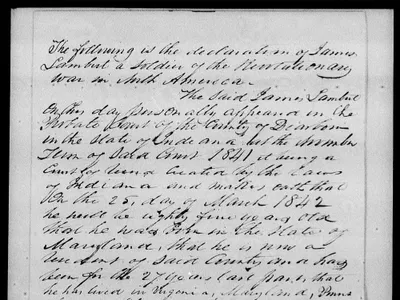 The following is the declaration of James
Lambert a soldier of the Revolutionary
war in North America.
The Said James Lambert
on this day personally appeared in the
Probate Court of the County of Dearborn
in the State of Indiana at the November
Term of Said Court 1841 it being a
Court of being created by the Laws
of Indiana and maketh oath that
On the 25, day of March 1842
he will be eighty five years old
that he was born in the State of
Maryland, that he is now a
resident of Said County and has
been for the 27 years last past, that
he has lived in Virginia, Maryland, Penns